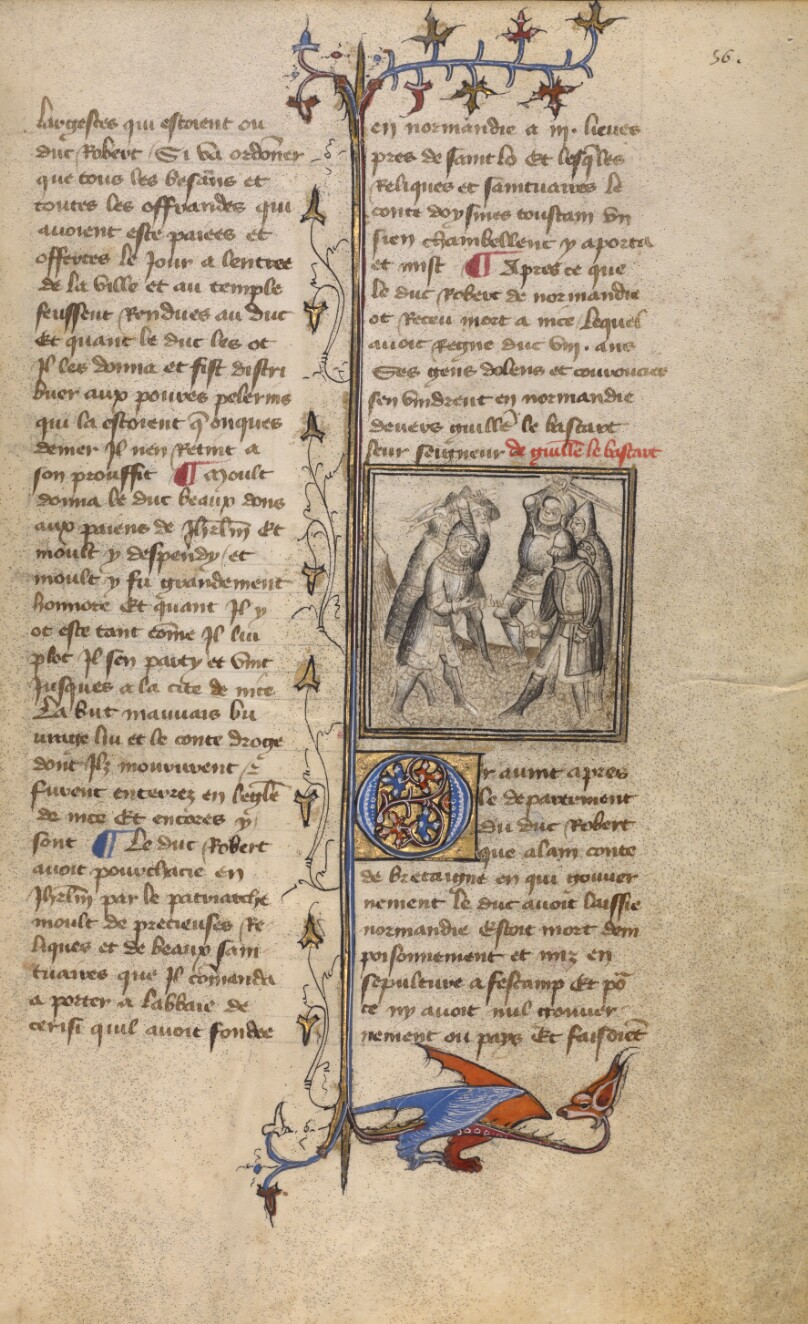 56.
largesces qui estoient ou
duc Robert Si va ordoner
que tous les besans et
toutes les offrandes qui
auoient este paiees et
offertes le Jour a lentree
de la ville et au temple
feussent Rendues au duc
Et quant le duc les ot
Jl les donna et fist distri
buer aux poures pelerins
qui la estoient q̃ onques
denier Jl nen Retint a
son prouffit ¶ Moult
donna le duc beaux dons
aux paiens de Jhrlm̃ Et
moult y despendy et
moult y fu grandement
honnore Et quant Jl y
ot este tant cõme Jl lui
plot Jl sen party et vint
Jusques a la cite de nice
La but mauuais bu
urage lui et le conte droge
dont Jlz moururent ⁊
furent enterrez en leglẽ
de nice Et encores y
sont ¶ Le duc Robert
auoit pourchacie en
Jhrlm̃ par le patriarche
moult de precieuses Re
liques et de beaux sain
tuaires que Jl cõmanda
a porter a labbaie de
cerisi quil auoit fondee
en normandie a iij. lieues
pres de saint lo Et lesq̃les
Reliques et saintuaires le
conte doysmes toustain vn
sien chambellenc y aporta
et mist ¶ Apres ce que
le duc Robert de normandie
ot Receu mort a nice lequel
auoit Regne duc viij. ans
Ses gens dolens et courouciez
sen vindrent en normandie
deuers guillẽ le bastart
leur seigneur de guillẽ le bastart
Or auint apres
le departement
du duc Robert
que alain conte
de bretaigne en qui gouuer
nement le duc auoit laissie
normandie Estoit mort dem
poisonnement et mis en
sepulture a fescamp Et põ
ce ny auoit nul gouuer
nement ou pays Et faisoiẽt